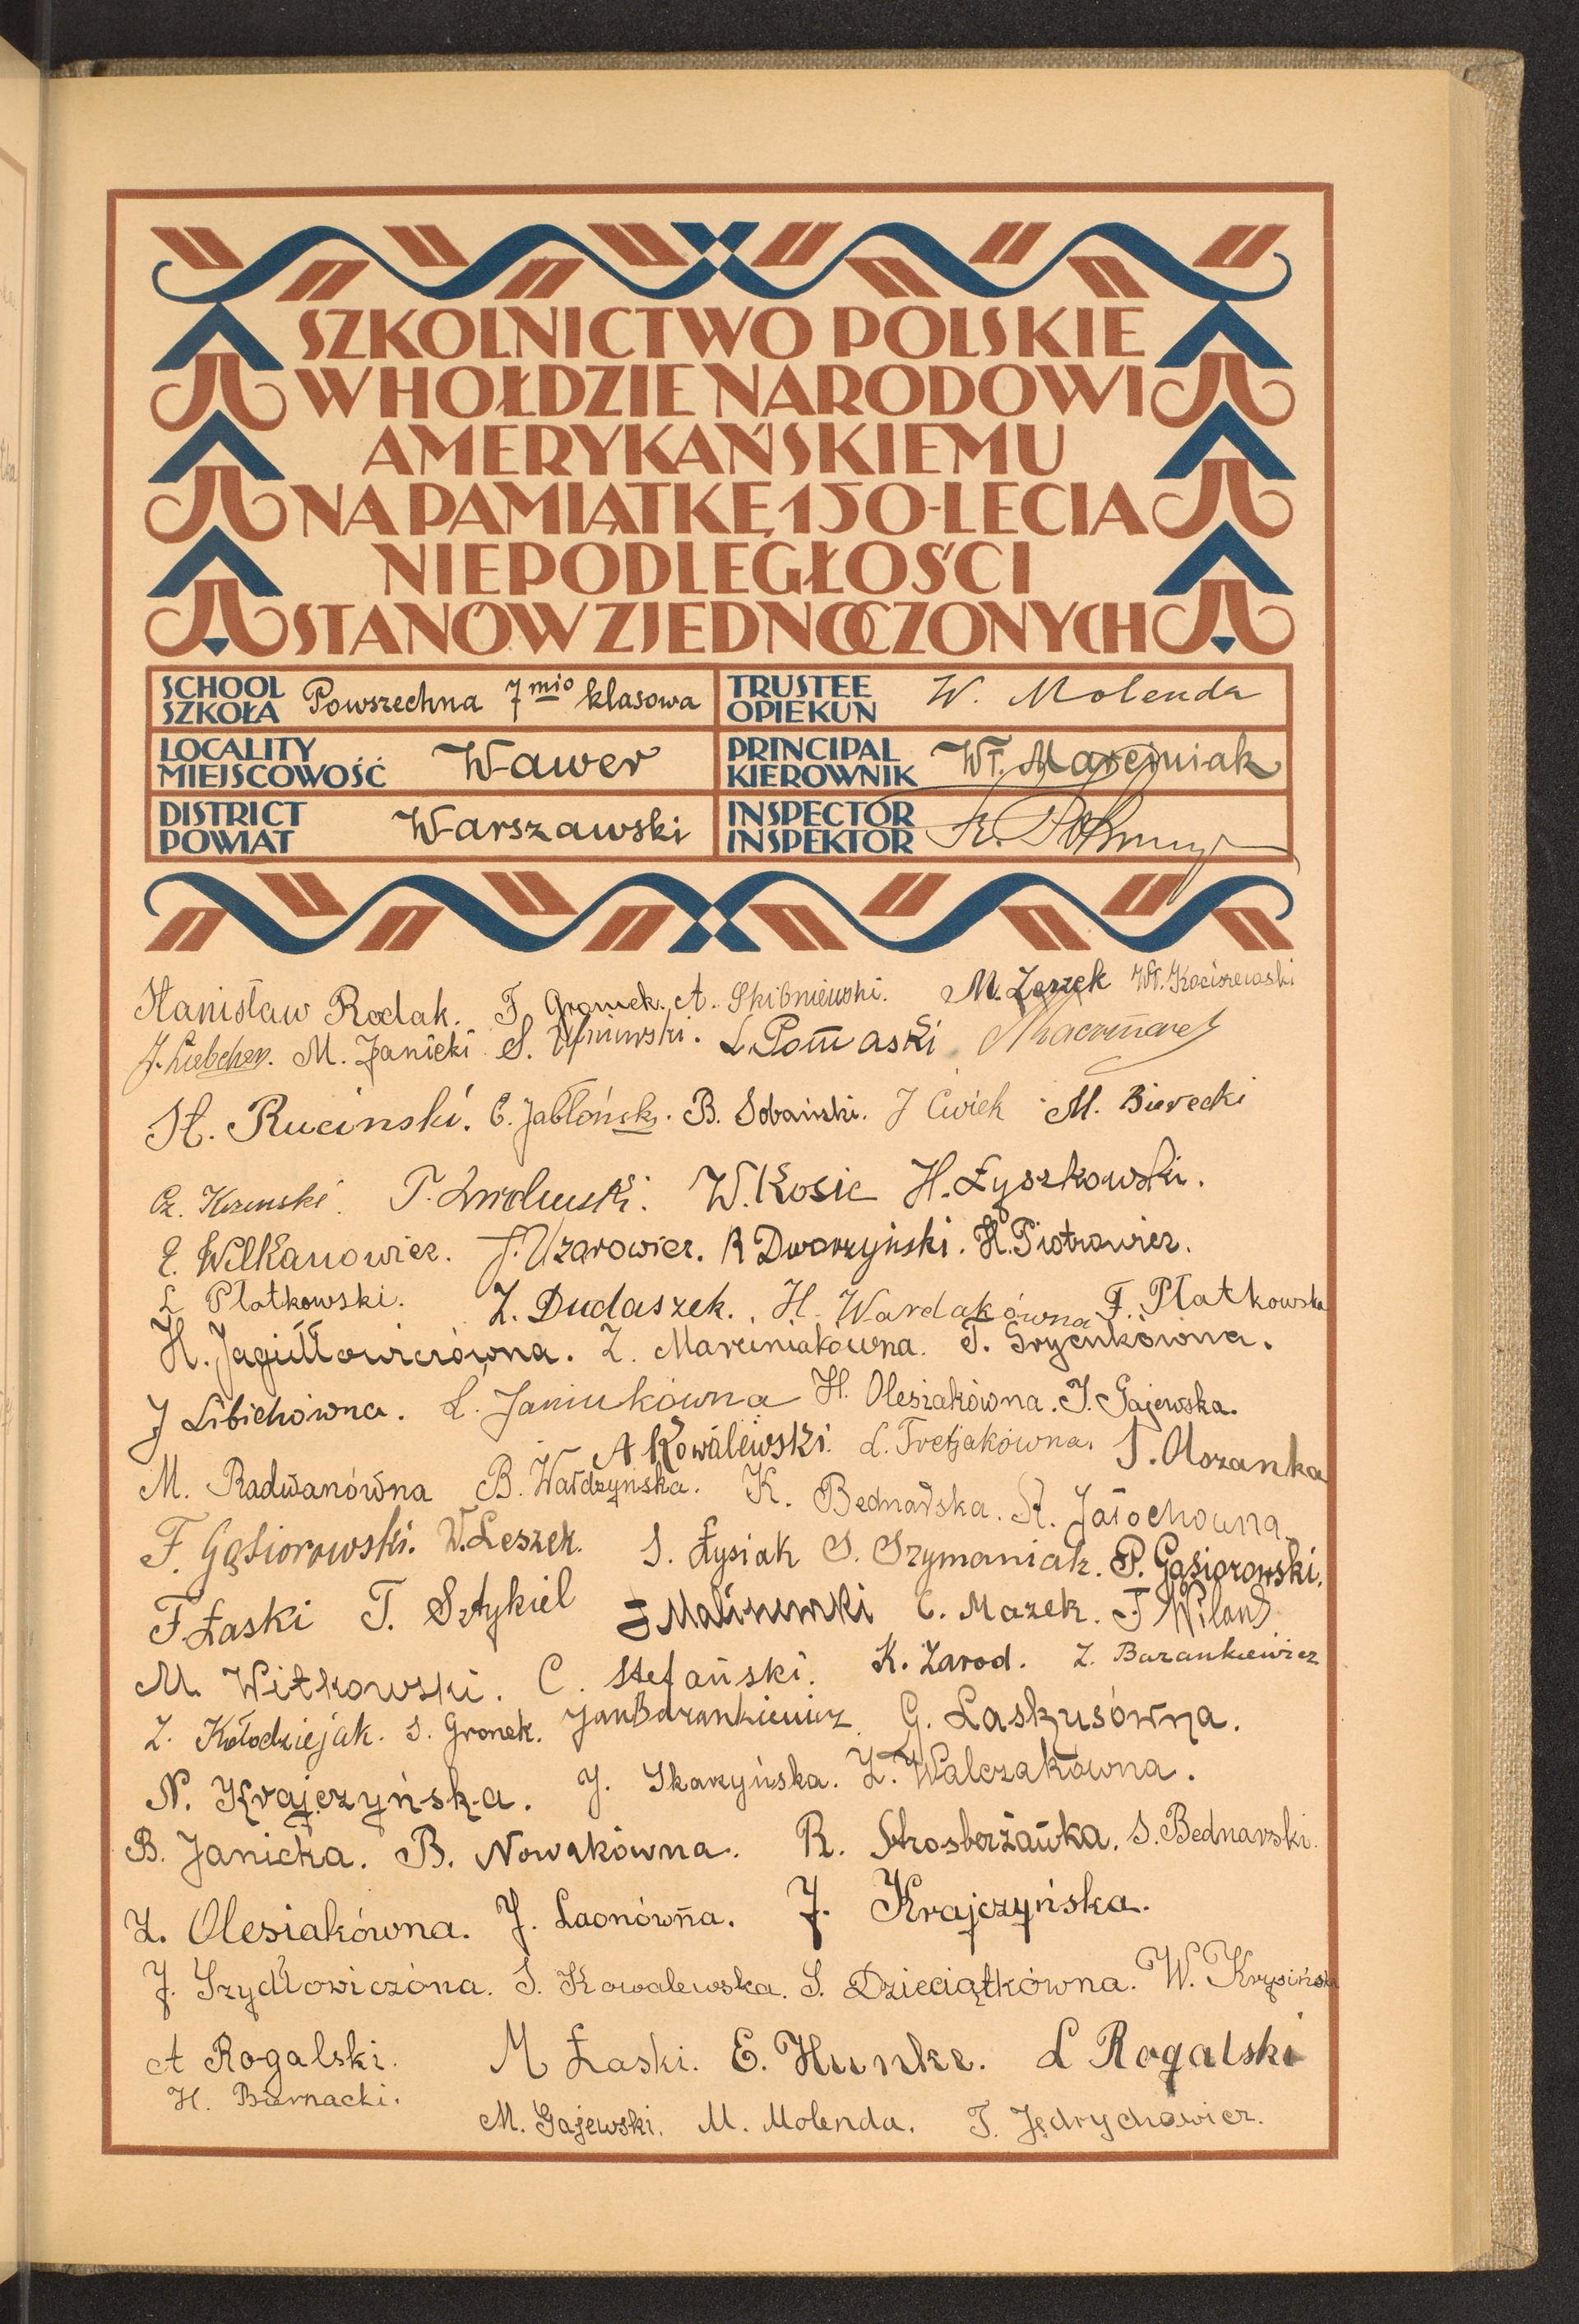 SZKOLNICTWO POLSKIE
W HOŁDZIE NARODOWI
AMERYKAŃSKIEMU
NA PAMIĄTKĘ 150-LECIA
NIEPODLEGŁOŚCI
STANÓW ZJEDNOCZONYCH
SCHOOL SZKOŁA Powszechna 7mio klasowa
TRUSTEE OPIEKUN W. Molenda
LOCALITY MIEJSCOWOŚĆ Wawer
PRINCIPAL KIEROWNIK Wł. Marciniak
DISTRICT POWIAT Warszawski
INSPECTOR INSPEKTOR
Stanisław Rodak. F. Gromek. A. Skibniewski. M. Leszek
J. Liebchen. M. Janicki S. L. Pomaski
St. Rucinski. C. Jabłońsk. B. Sobański. J Cwiek M. Bierecki
Cz. W. Kosic H. Łyszkowski.
E. Wilkanowicz. J. Uzarowicz. R Dworzyński. H. Piotrowicz.
L Płatkowski. Z. Dudaszek. H. Wardakówna F. Płatkowska
H. Z. Marciniakówna. T. Grycukówna.
J Libichówna. L. Janiukówna H. Olesiakówna. J. Gajewska.
A Kowalewski. L. Tretjakówna. S. Olszanka
M. Radwanówna B. Wałdzyńska. K. Bednarska. St. Jałochowna
F. Gąsiorowski. W. Leszek. S. Łysiak S. Szymaniak. P. Gąsiorowski.
F. Łaski T. Sztykiel J Malinowski C. Mazek. J Wilant
M. Witkowski. C. Stefański. K. Zarod. Z. Barankiewicz
Z. Kołodziejak. S. Gronek. Jan Barankiewicz G. Laskusówna.
N. Krajczyńska. J. Skarzyńska. Z. Walczakówna.
B. Janicka. B. Nowakówna. R. S. Bednarski.
Z. Olesiakówna. J. Laonówna. J. Krajczyńska.
J. Szydłowiczóna. S. Kowalewska. S. Dzieciątkówna. W. Krysińska
A Rogalski. M Łaski. E. Hunke. L Rogalski
H. Biernacki.
M. Gajewski. M. Molenda. T. Jędrychowicz.